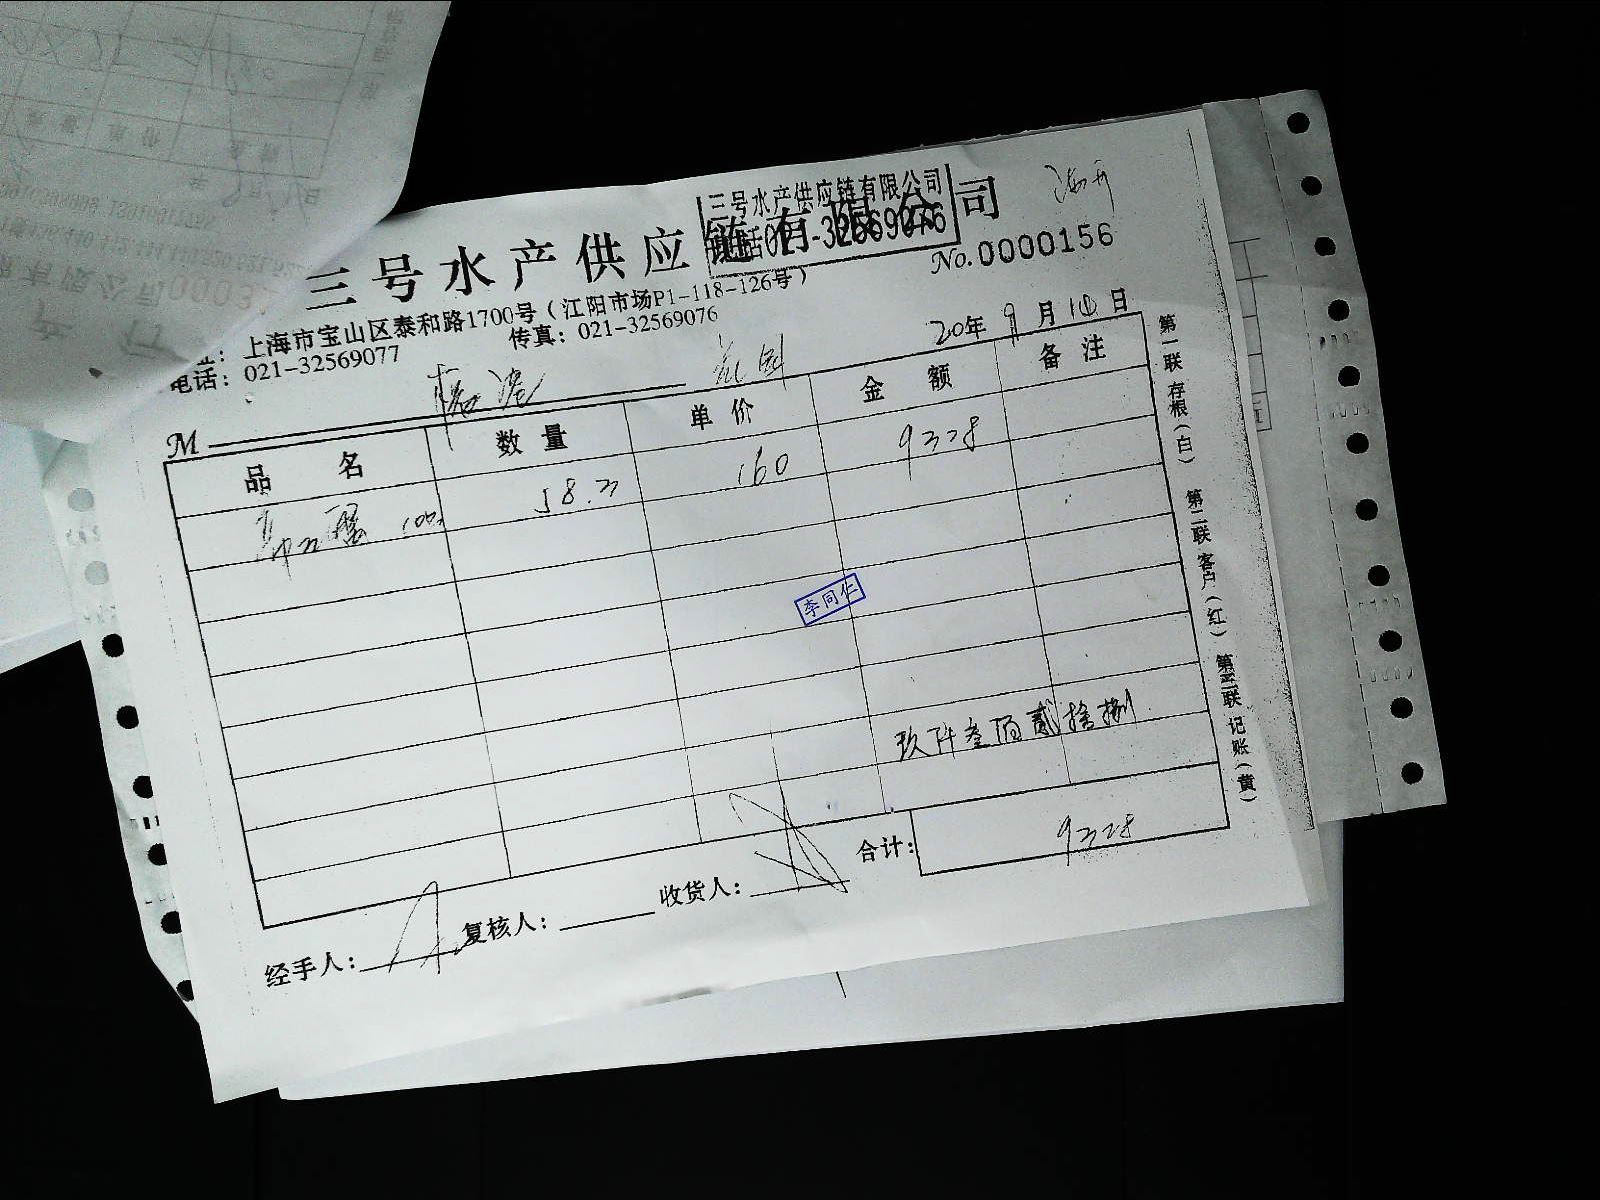 三号水产供应链有限公司
三号水产供应链有限公司
电话021-32569076
No.0000156
上海市宝山区泰和路1700号（江阳市场P1-118-126号）
电话：021-32569077 传真：021-32569076
20年9月10日
M
品名 数量 单价 金额 备注
58.3 160 9328
李同仁
玖仟叁佰贰拾捌
合计： 9328
经手人： 复核人： 收货人：
第一联 存根（白） 第二联 客户（红） 第三联 记账（黄）